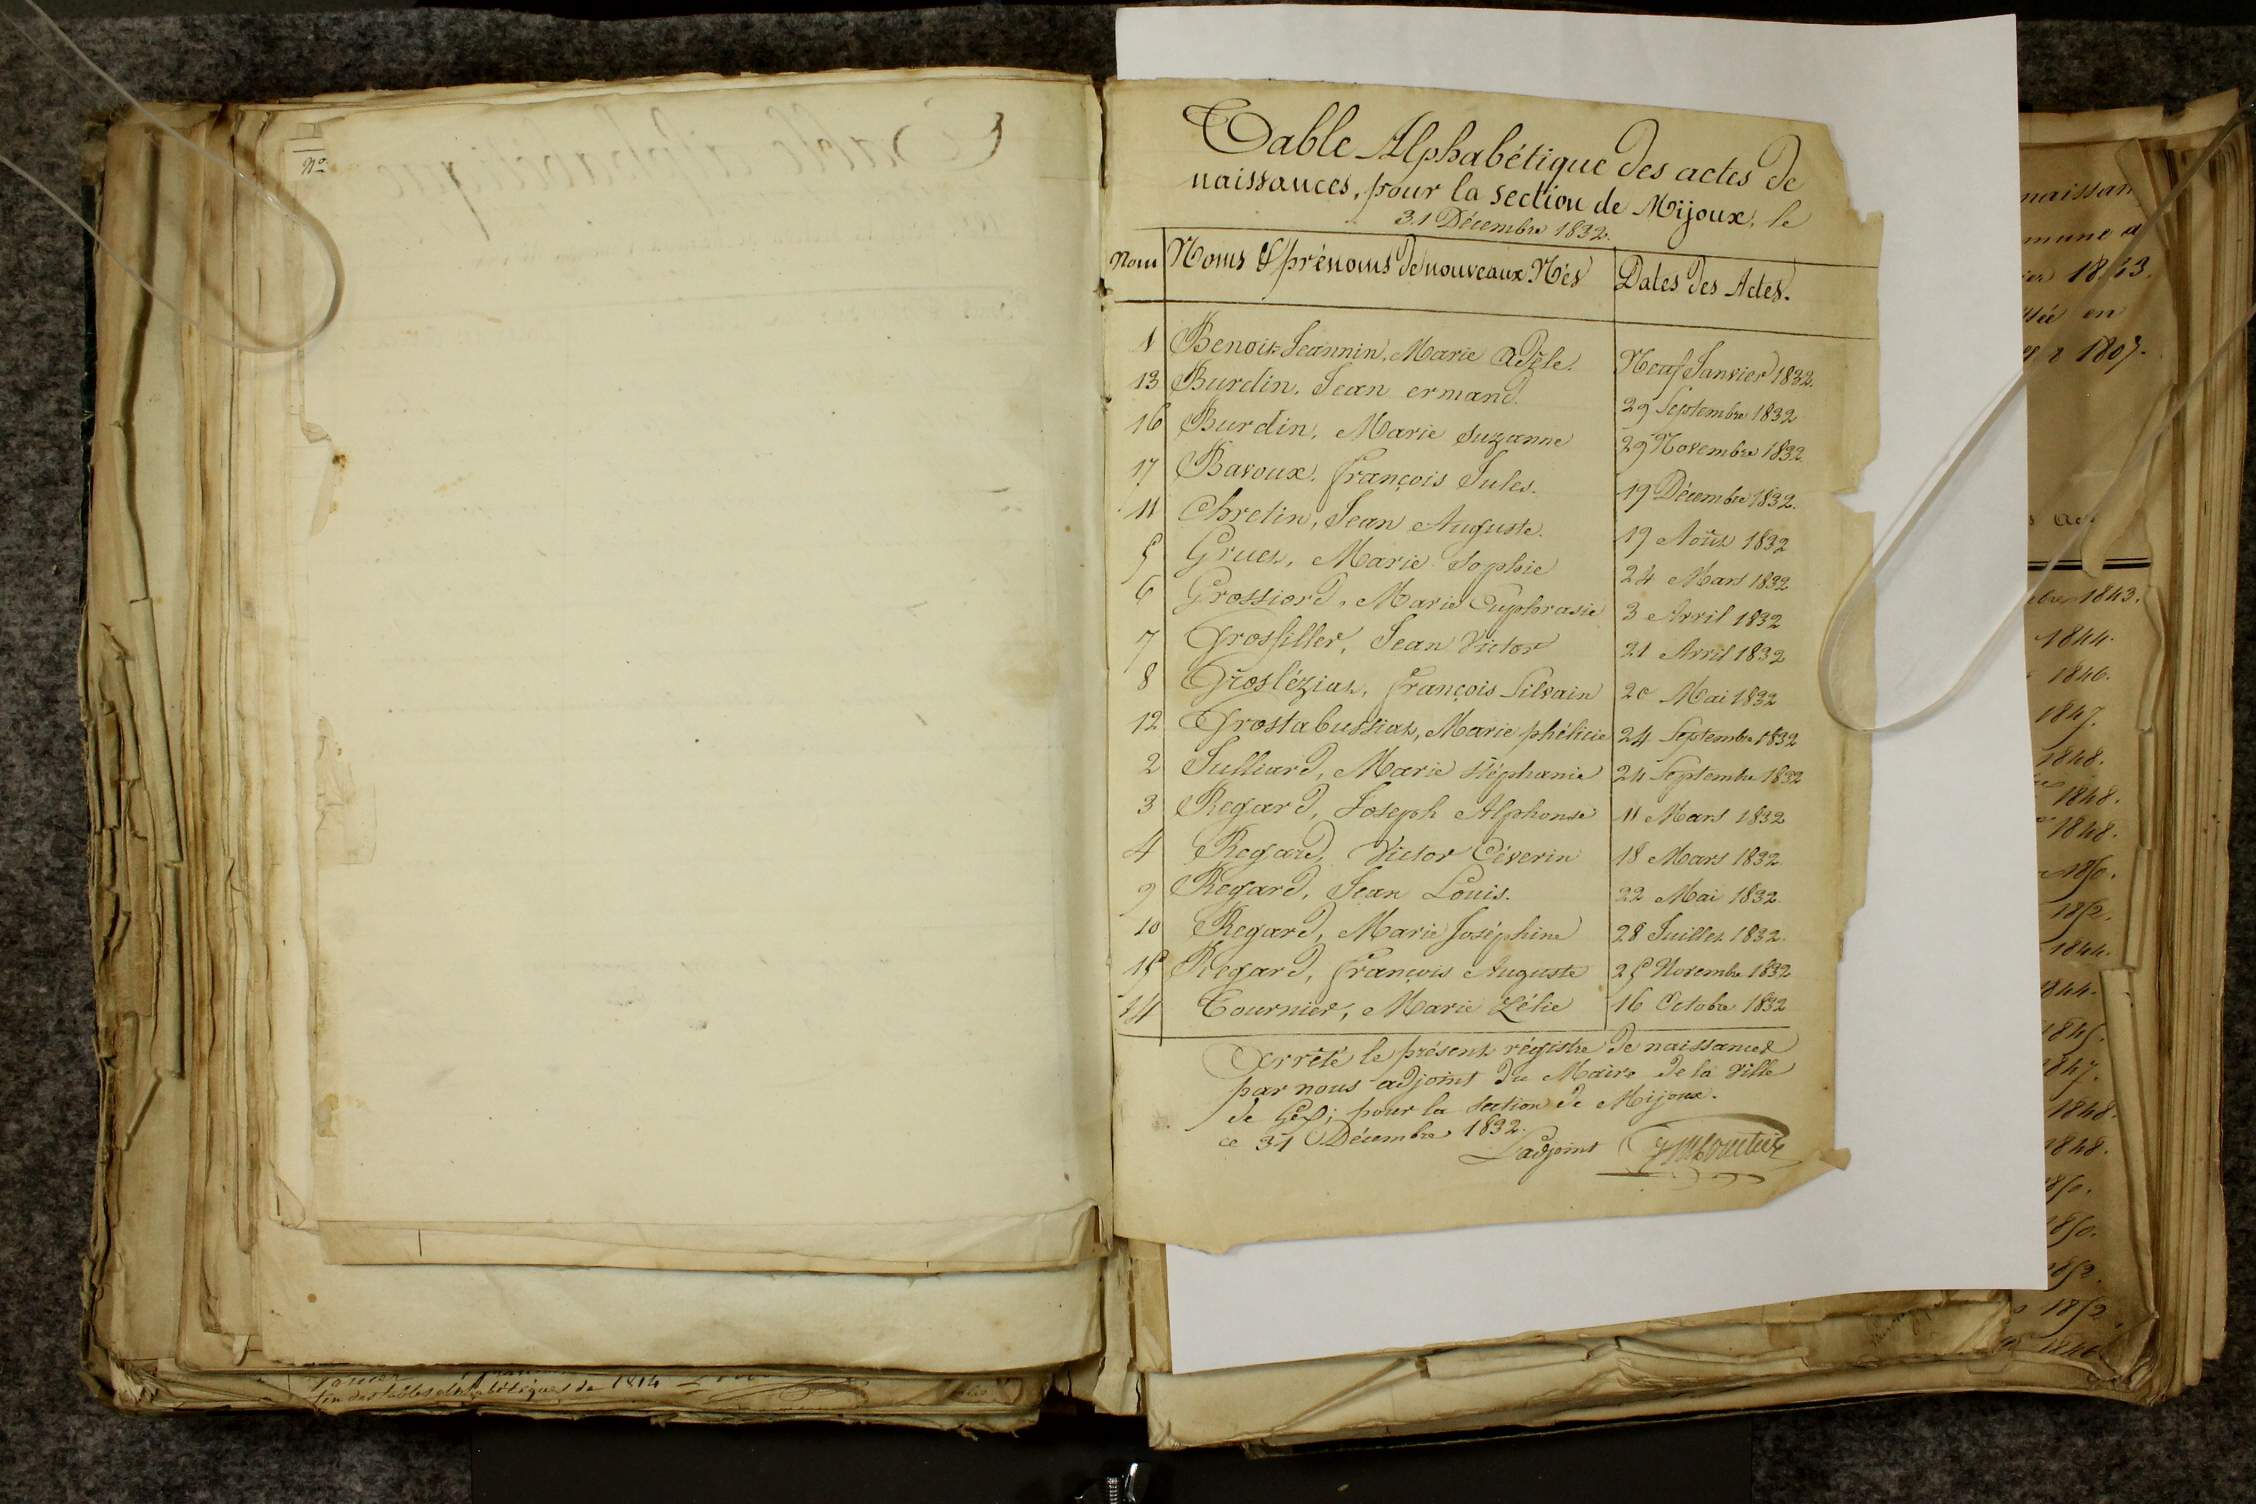 No
Table Alphabétique des actes de
naissances, pour la section de Mijoux, le
31 Décembre 1832.
Nom Noms & prénoms de nouveaux Nés Dates des Actes.
1 Benoit-Jeannin, Marie Adèle. Neuf Janvier 1832.
13 Burdin, Jean ermand. 29 Septembre 1832
16 Burdin, Marie Suzanne 29 Novembre 1832.
17 Bavoux, François Jules. 19 Décembre 1832.
11 Chretin, Jean Auguste. 19 Août 1832
5 Gruet, Marie Sophie 24 Mars 1832
6 Grossiord, Marie Euphrasie 3 Avril 1832
7 Grosfiller, Jean Victor 21 Avril 1832
8 Grosléziat, François Silvain 20 Mai 1832
12 Grostabussiat, Marie phélicie 24 Septembre 1832
2 Julliard, Marie Stéphanie 24 Septembre 1832
3 Regard, Joseph Alphonse 11 Mars 1832
4 Regard, Victor Céverin 18 Mars 1832
9 Regard, Jean Louis. 22 Mai 1832.
10 Regard, Marie Joséphine 28 Juillet 1832.
15 Regard, François Auguste 25 Novembre 1832
14 Tournier, Marie Zélie 16 Octobre 1832
Arrêté le présent régistre de naissances
par nous adjoint du Maire de la Ville
de Gex; pour la section de Mijoux.
ce 31 Décembre 1832.
L'adjoint
fin des tables alphabétiques de 1814
naissan
mune d
1843.
en
1807.
1843.
1844.
1846.
1847.
1848.
1848.
1848.
1850.
1852.
1844.
1844.
1845.
1847.
1848.
1848.
1850.
1850.
1852.
1852.